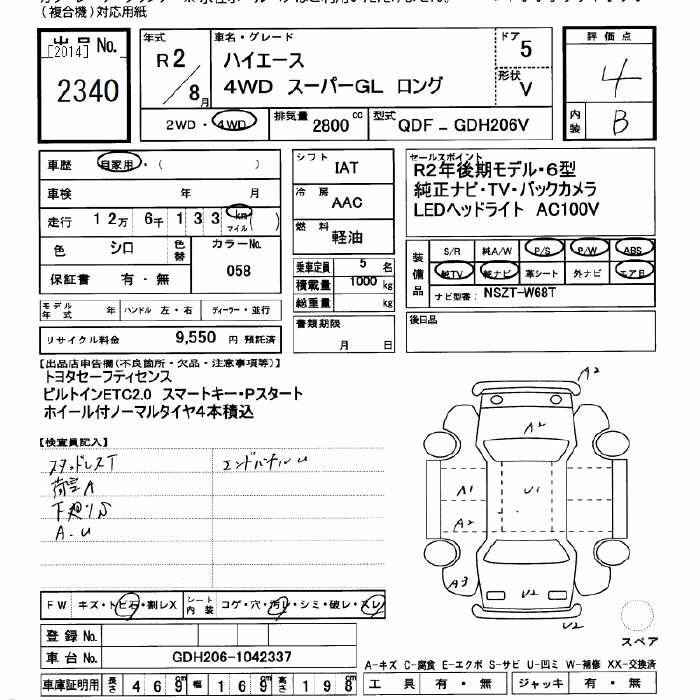 (複合機)対応用紙
出品No.
[2014]
2340
年式 R2/8月
車名・グレード
ハイエース
4WD スーパーGL ロング
ドア 5
形状 V
評価点
4
内装 B
2WD・4WD
排気量 2800cc
型式 QDF-GDH206V
車歴 自家用・( )
車検 年 月
走行 12万6千133 km マイル ( )
色 シロ 色替 カラーNo. 058
保証書 有・無
モデル年式 年 ハンドル 左・右 ディーラー・並行
リサイクル料金 9,550 円 預託済
シフト IAT
冷房 AAC
燃料 軽油
乗車定員 5 名
積載量 1000 kg
総重量 kg
書類期限
月 日
セールスポイント
R2年後期モデル・6型
純正ナビ・TV・バックカメラ
LEDヘッドライト AC100V
装備品
S/R 純A/W P/S P/W ABS
純TV 純ナビ 革シート 外ナビ エアB
ナビ型番: NSZT-W68T
後日品
【出品店申告欄(不良箇所・欠品・注意事項等)】
トヨタセーフティセンス
ビルトインETC2.0 スマートキー・Pスタート
ホイール付ノーマルタイヤ4本積込
【検査員記入】
スタッドレスT
荷室A
下廻りS
A.U
エンドパネルU
A2
A2
A1
U1
A2
A3
U2
U2
スペア
FW キズ・トビ石・割レX
シート内装 コゲ・穴・汚レ・シミ・破レ・スレ
登録No.
車台No. GDH206-1042337
車庫証明用 長さ 469cm 幅 169cm 高さ 198cm
A-キズ C-腐食 E-エクボ S-サビ U-凹ミ W-補修 XX-交換済
工具 有・無 ジャッキ 有・無